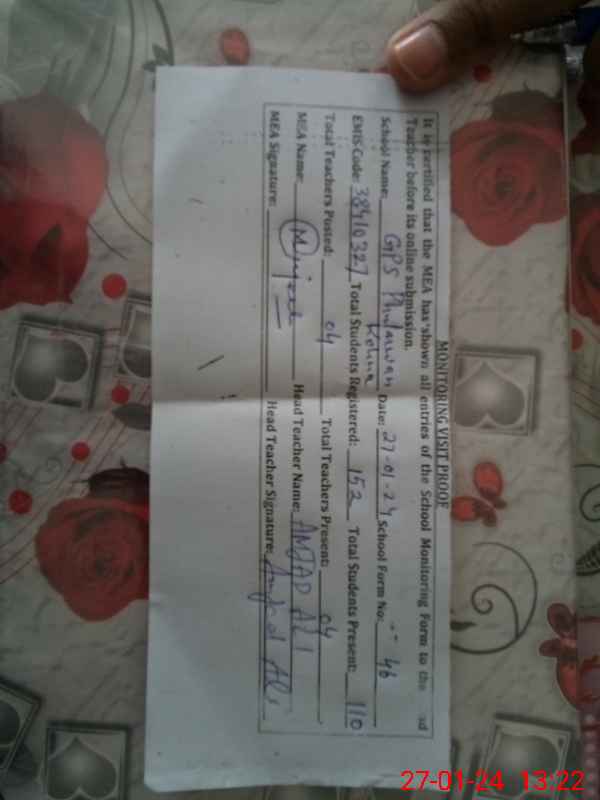 MONITORING VISIT PROOF
It is certified that the MEA has shown all entries of the School Monitoring Form to the ad
Teacher before its online submission.
School Name: GPS Phularwan Kohna Date: 27-01-24 School Form No: 46
EMIS Code: 38410327 Total Students Registered: 152 Total Students Present: 110
Total Teachers Posted: 04 Total Teachers Present: 04
MEA Name: Head Teacher Name: AMJAD ALI
MEA Signature: Head Teacher Signature: Amjad Ali
27-01-24 13:22